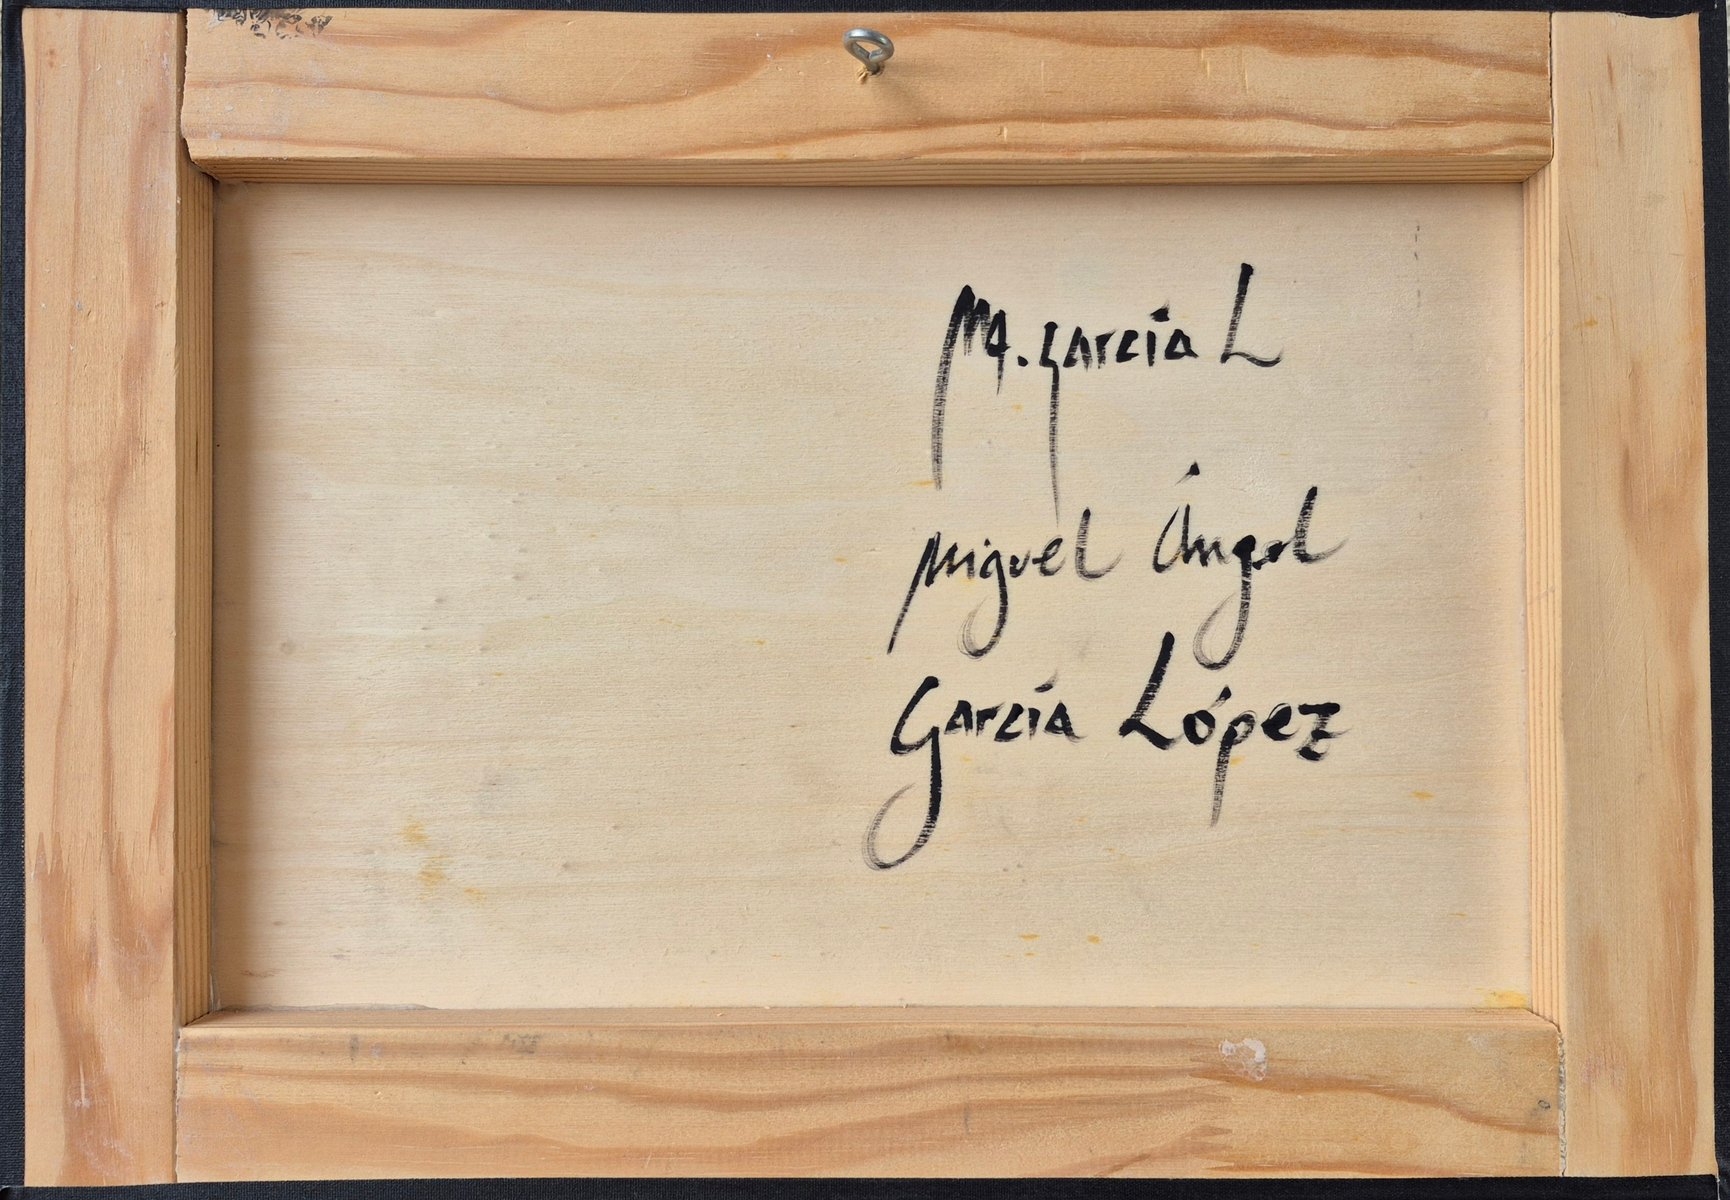 MA. García L
Miguel Ángel
García López